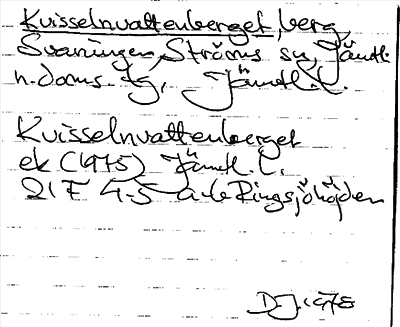 Kvisselnvattenberget, berg,
Svaningen, Ströms sn, Jämtl.
n. doms. tg, Jämtl. l.
Kvisselnvattenberget
ek (1975) Jämtl. l.
21 F 4-5 a-b Ringsjöhöjden
DJ. 1978